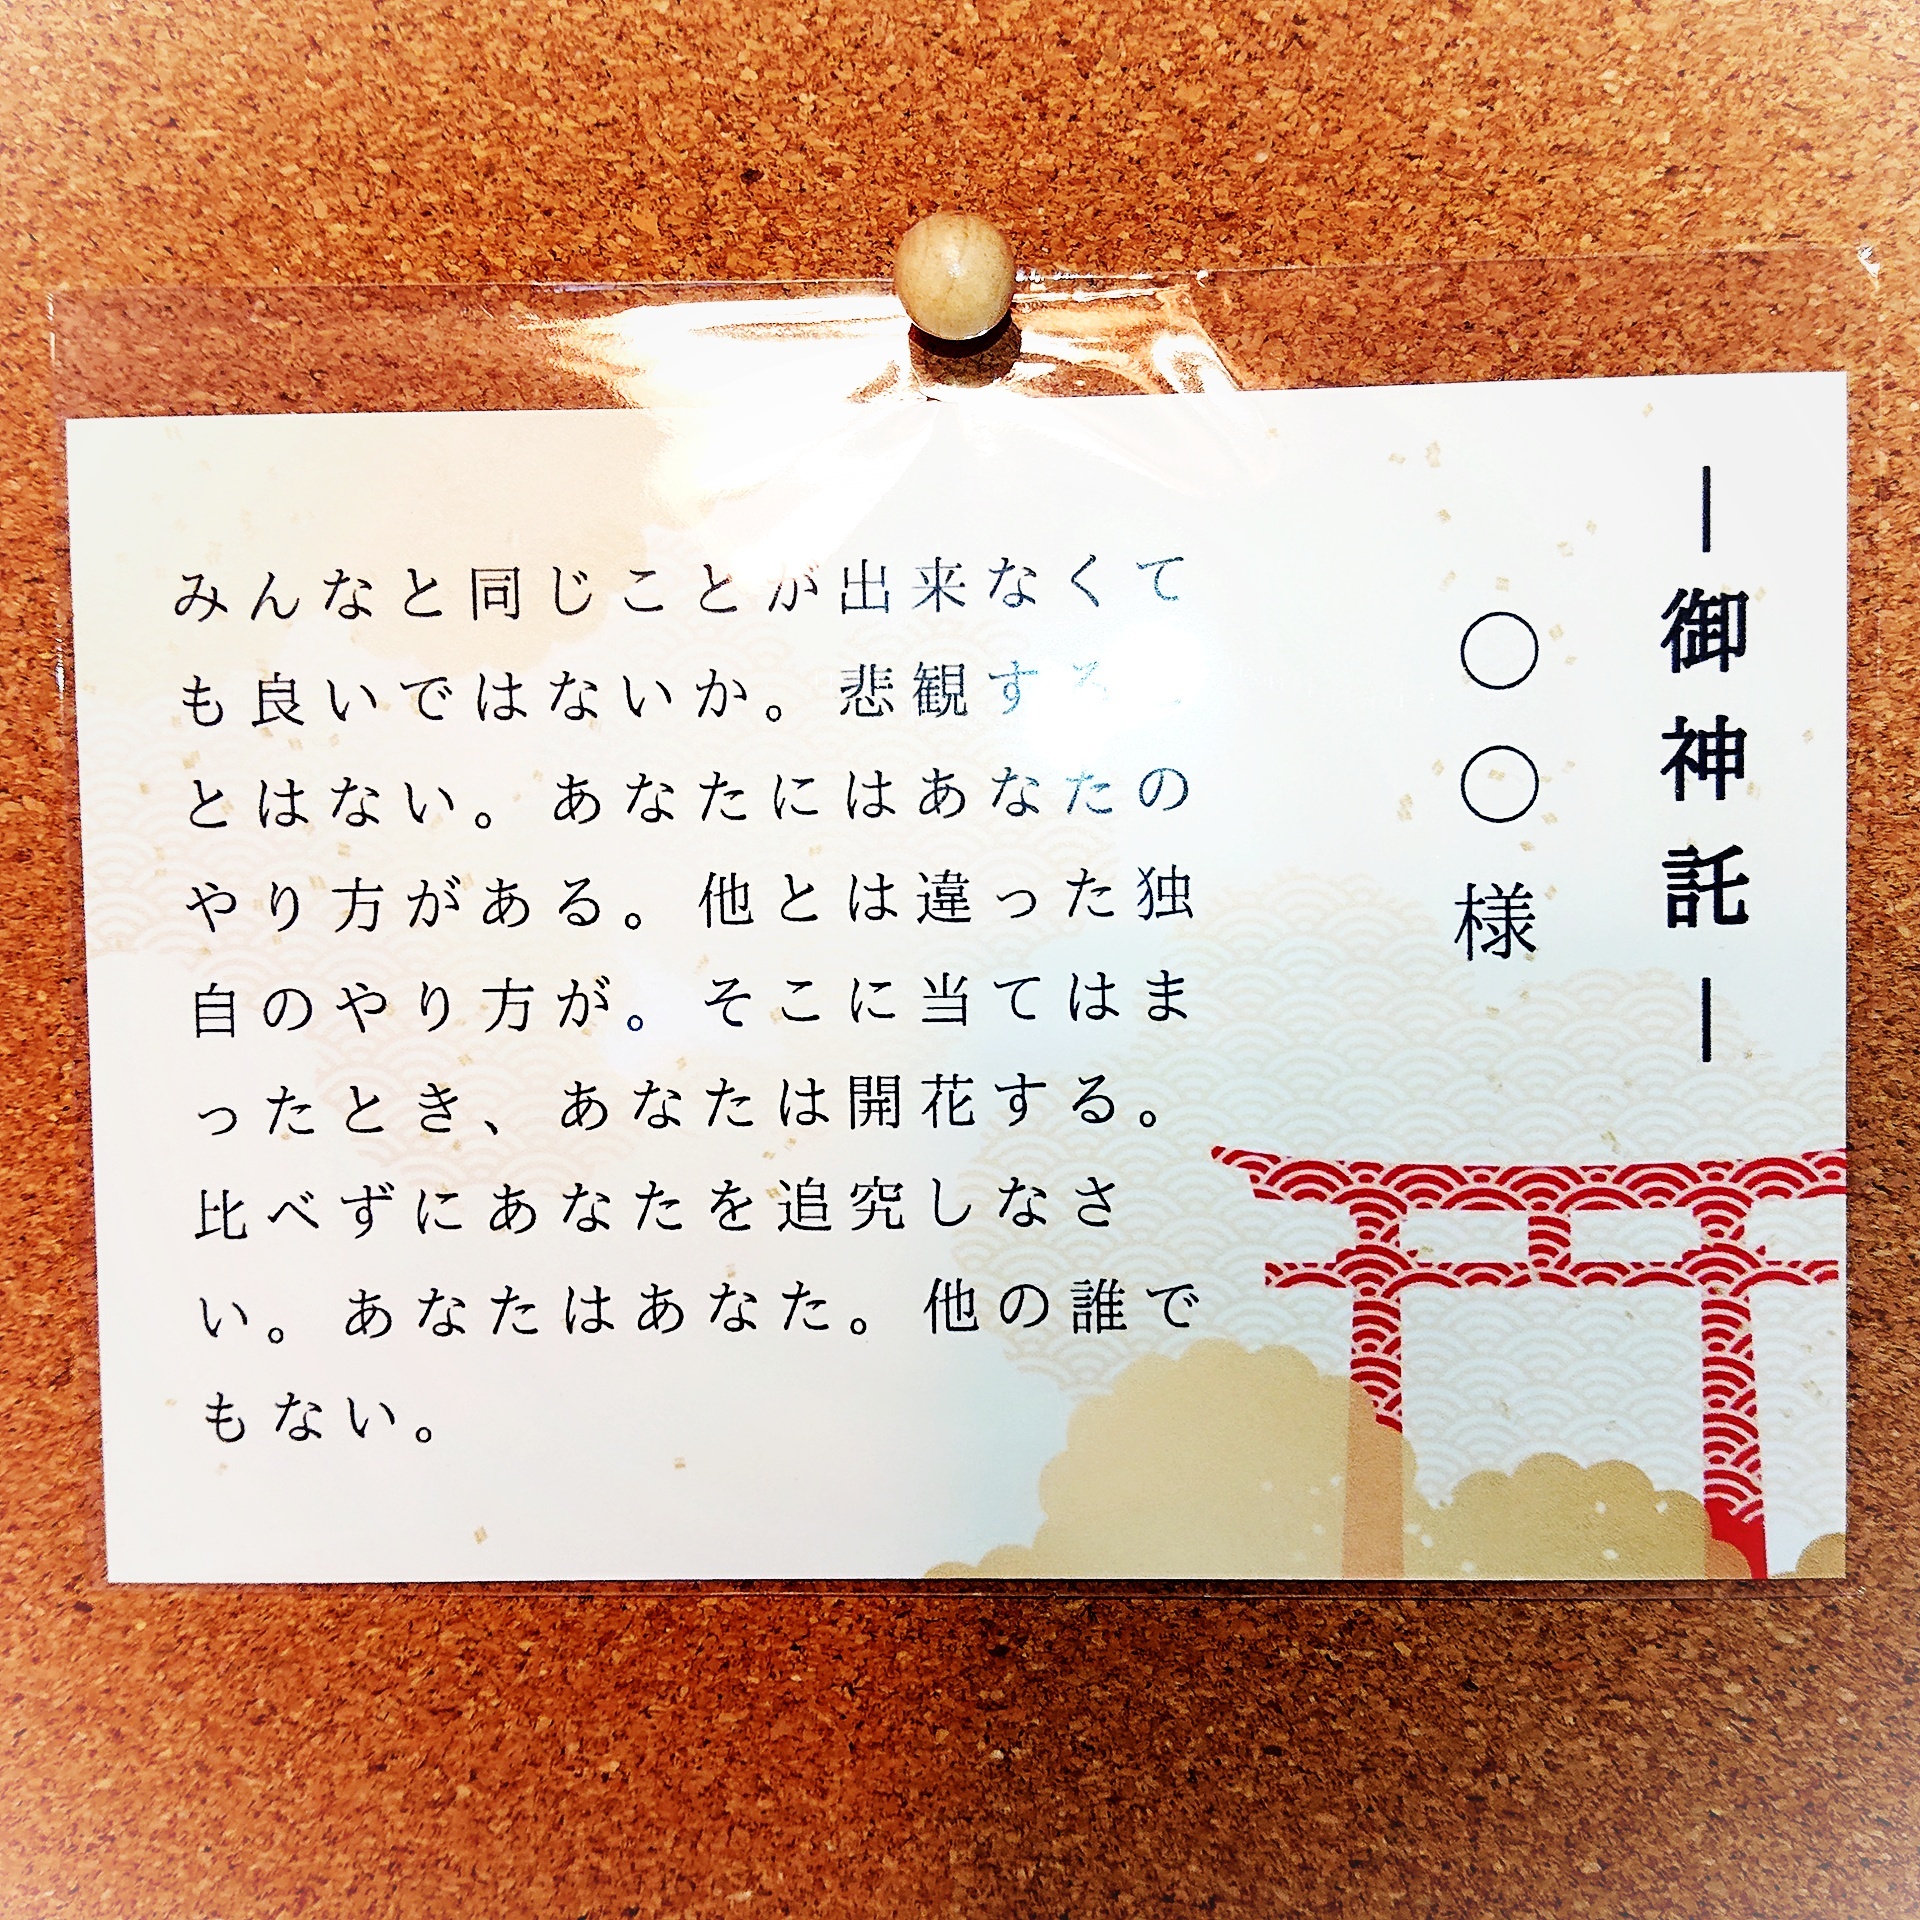 ―御神託―
○○様
みんなと同じことが出来なくて
も良いではないか。悲観する
とはない。あなたにはあなたの
やり方がある。他とは違った独
自のやり方が。そこに当てはま
ったとき、あなたは開花する。
比べずにあなたを追究しなさ
い。あなたはあなた。他の誰で
もない。